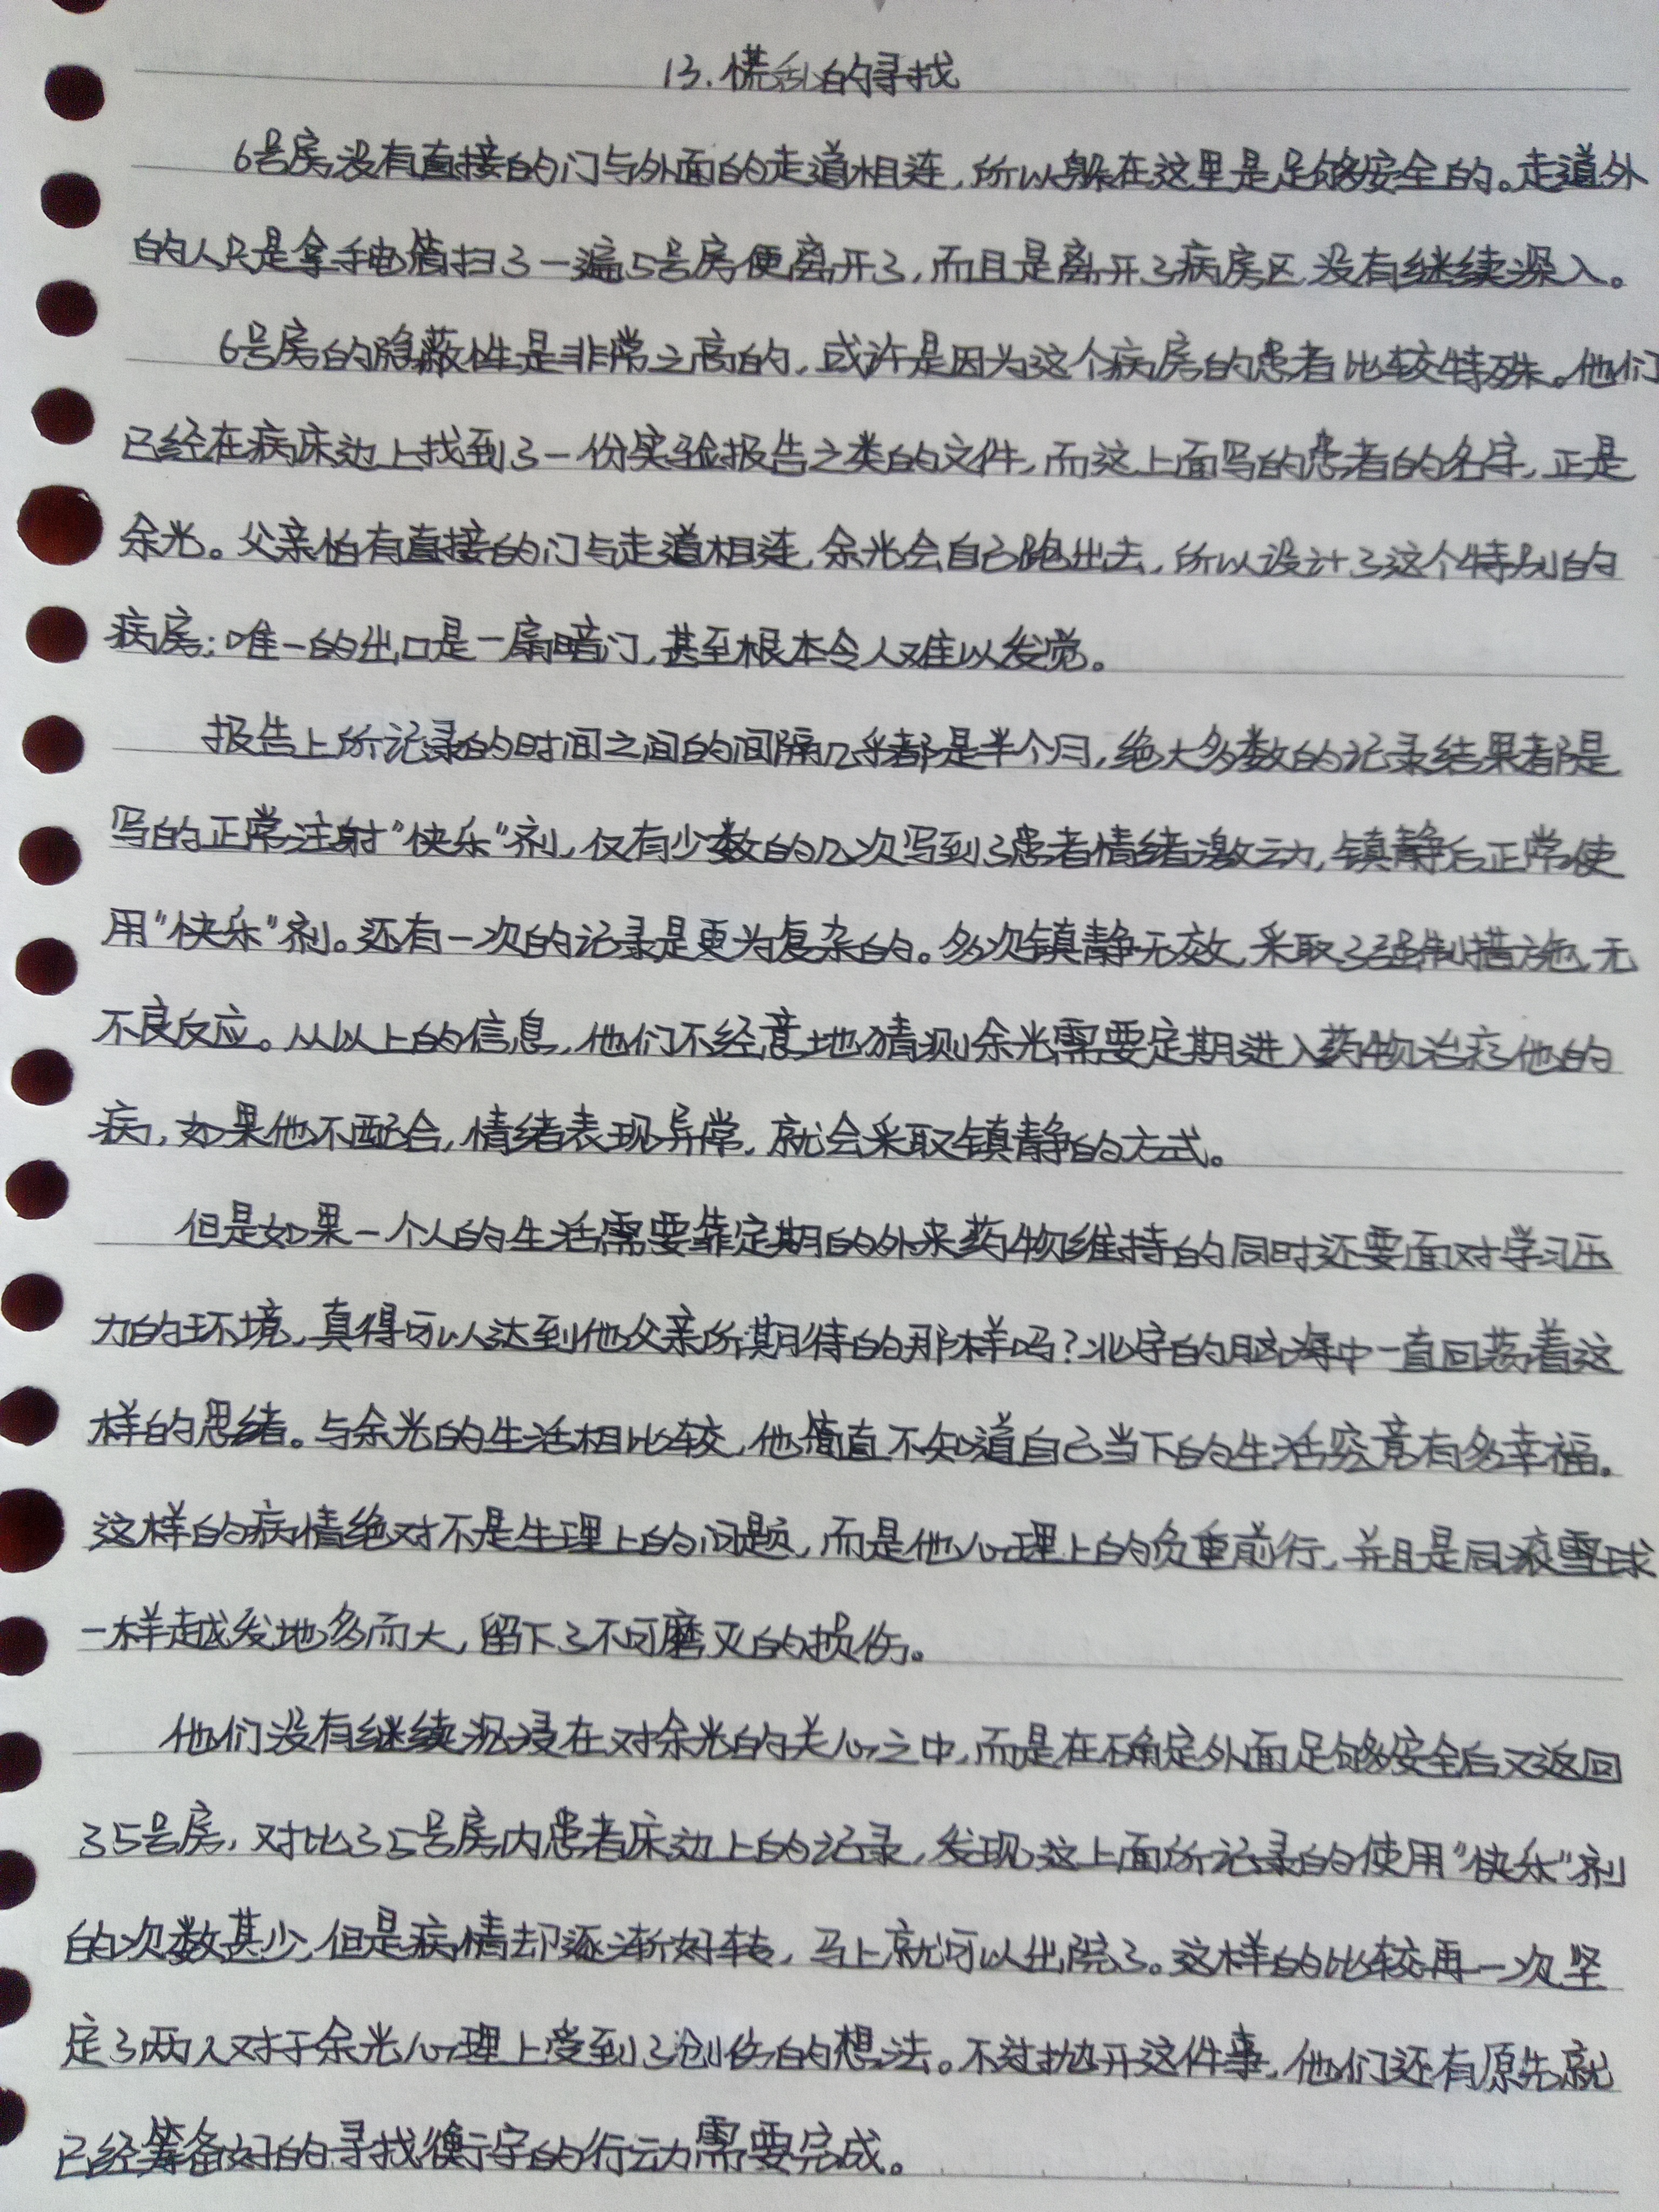 13.慌乱的寻找
6号房没有直接的门与外面的走道相连,所以躲在这里是足够安全的。走道外
的人只是拿手电筒扫了一遍5号房便离开了,而且是离开了病房区,没有继续深入。
6号房的隐蔽性是非常之高的,或许是因为这个病房的患者比较特殊。他们
已经在病床边上找到了一份实验报告之类的文件,而这上面写的患者的名字,正是
余光。父亲怕有直接的门与走道相连,余光会自己跑出去,所以设计了这个特别的
病房;唯一的出口是一扇暗门,甚至根本令人难以发觉。
报告上所记录的时间之间的间隔几乎都是半个月,绝大多数的记录结果都是
写的正常注射“快乐”剂,仅有少数的几次写到了患者情绪激动,镇静后正常使
用“快乐”剂。还有一次的记录是更为复杂的。多次镇静无效,采取了强制措施,无
不良反应。从以上的信息,他们不经意地猜测余光需要定期进入药物治疗他的
病,如果他不配合,情绪表现异常,就会采取镇静的方式。
但是如果一个人的生活需要靠定期的外来药物维持的同时还要面对学习压
力的环境,真得可以达到他父亲所期待的那样吗?北宇的脑海中一直回荡着这
样的思绪。与余光的生活相比较,他简直不知道自己当下的生活究竟有多幸福。
这样的病情绝对不是生理上的问题,而是他心理上的负重前行,并且是同滚雪球
一样越发地多而大,留下了不可磨灭的损伤。
他们没有继续沉浸在对余光的关心之中,而是在确定外面足够安全后又返回
35号房,对比35号房内患者床边上的记录,发现这上面所记录的使用“快乐”剂
的次数甚少,但是病情却逐渐好转,马上就可以出院了。这样的比较再一次坚
定了两人对于余光心理上受到了创伤的想法。不过抛开这件事,他们还有原先就
已经筹备好的寻找衡宇的行动需要完成。